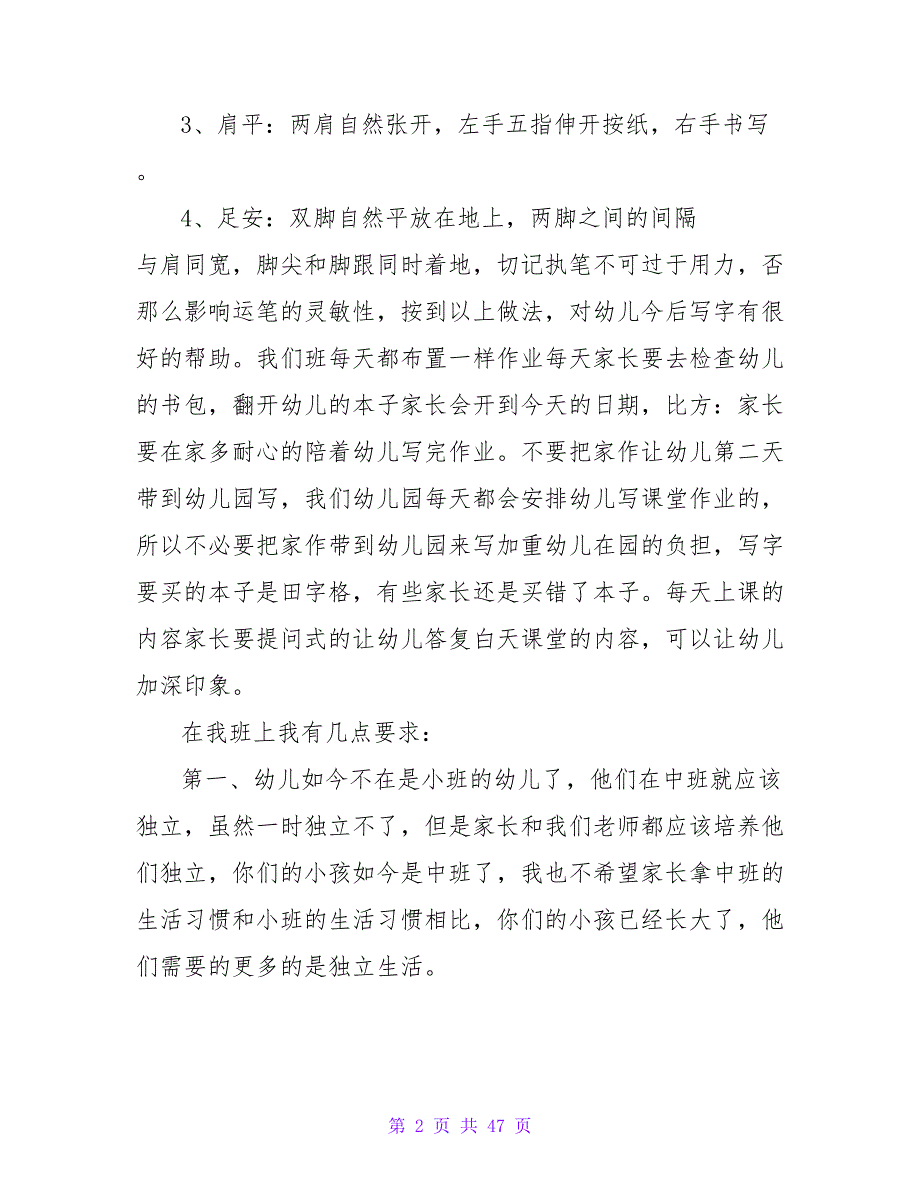 3、肩平：两肩自然张开，左手五指伸开按纸，右手书写
。
4、足安：双脚自然平放在地上，两脚之间的间隔
与肩同宽，脚尖和脚跟同时着地，切记执笔不可过于用力，否
那么影响运笔的灵敏性，按到以上做法，对幼儿今后写字有很
好的帮助。我们班每天都布置一样作业每天家长要去检查幼儿
的书包，翻开幼儿的本子家长会开到今天的日期，比方：家长
要在家多耐心的陪着幼儿写完作业。不要把家作让幼儿第二天
带到幼儿园写，我们幼儿园每天都会安排幼儿写课堂作业的，
所以不必要把家作带到幼儿园来写加重幼儿在园的负担，写字
要买的本子是田字格，有些家长还是买错了本子。每天上课的
内容家长要提问式的让幼儿答复白天课堂的内容，可以让幼儿
加深印象。
在我班上我有几点要求：
第一、幼儿如今不在是小班的幼儿了，他们在中班就应该
独立，虽然一时独立不了，但是家长和我们老师都应该培养他
们独立，你们的小孩如今是中班了，我也不希望家长拿中班的
生活习惯和小班的生活习惯相比，你们的小孩已经长大了，他
们需要的更多的是独立生活。
第 2 页 共 47 页